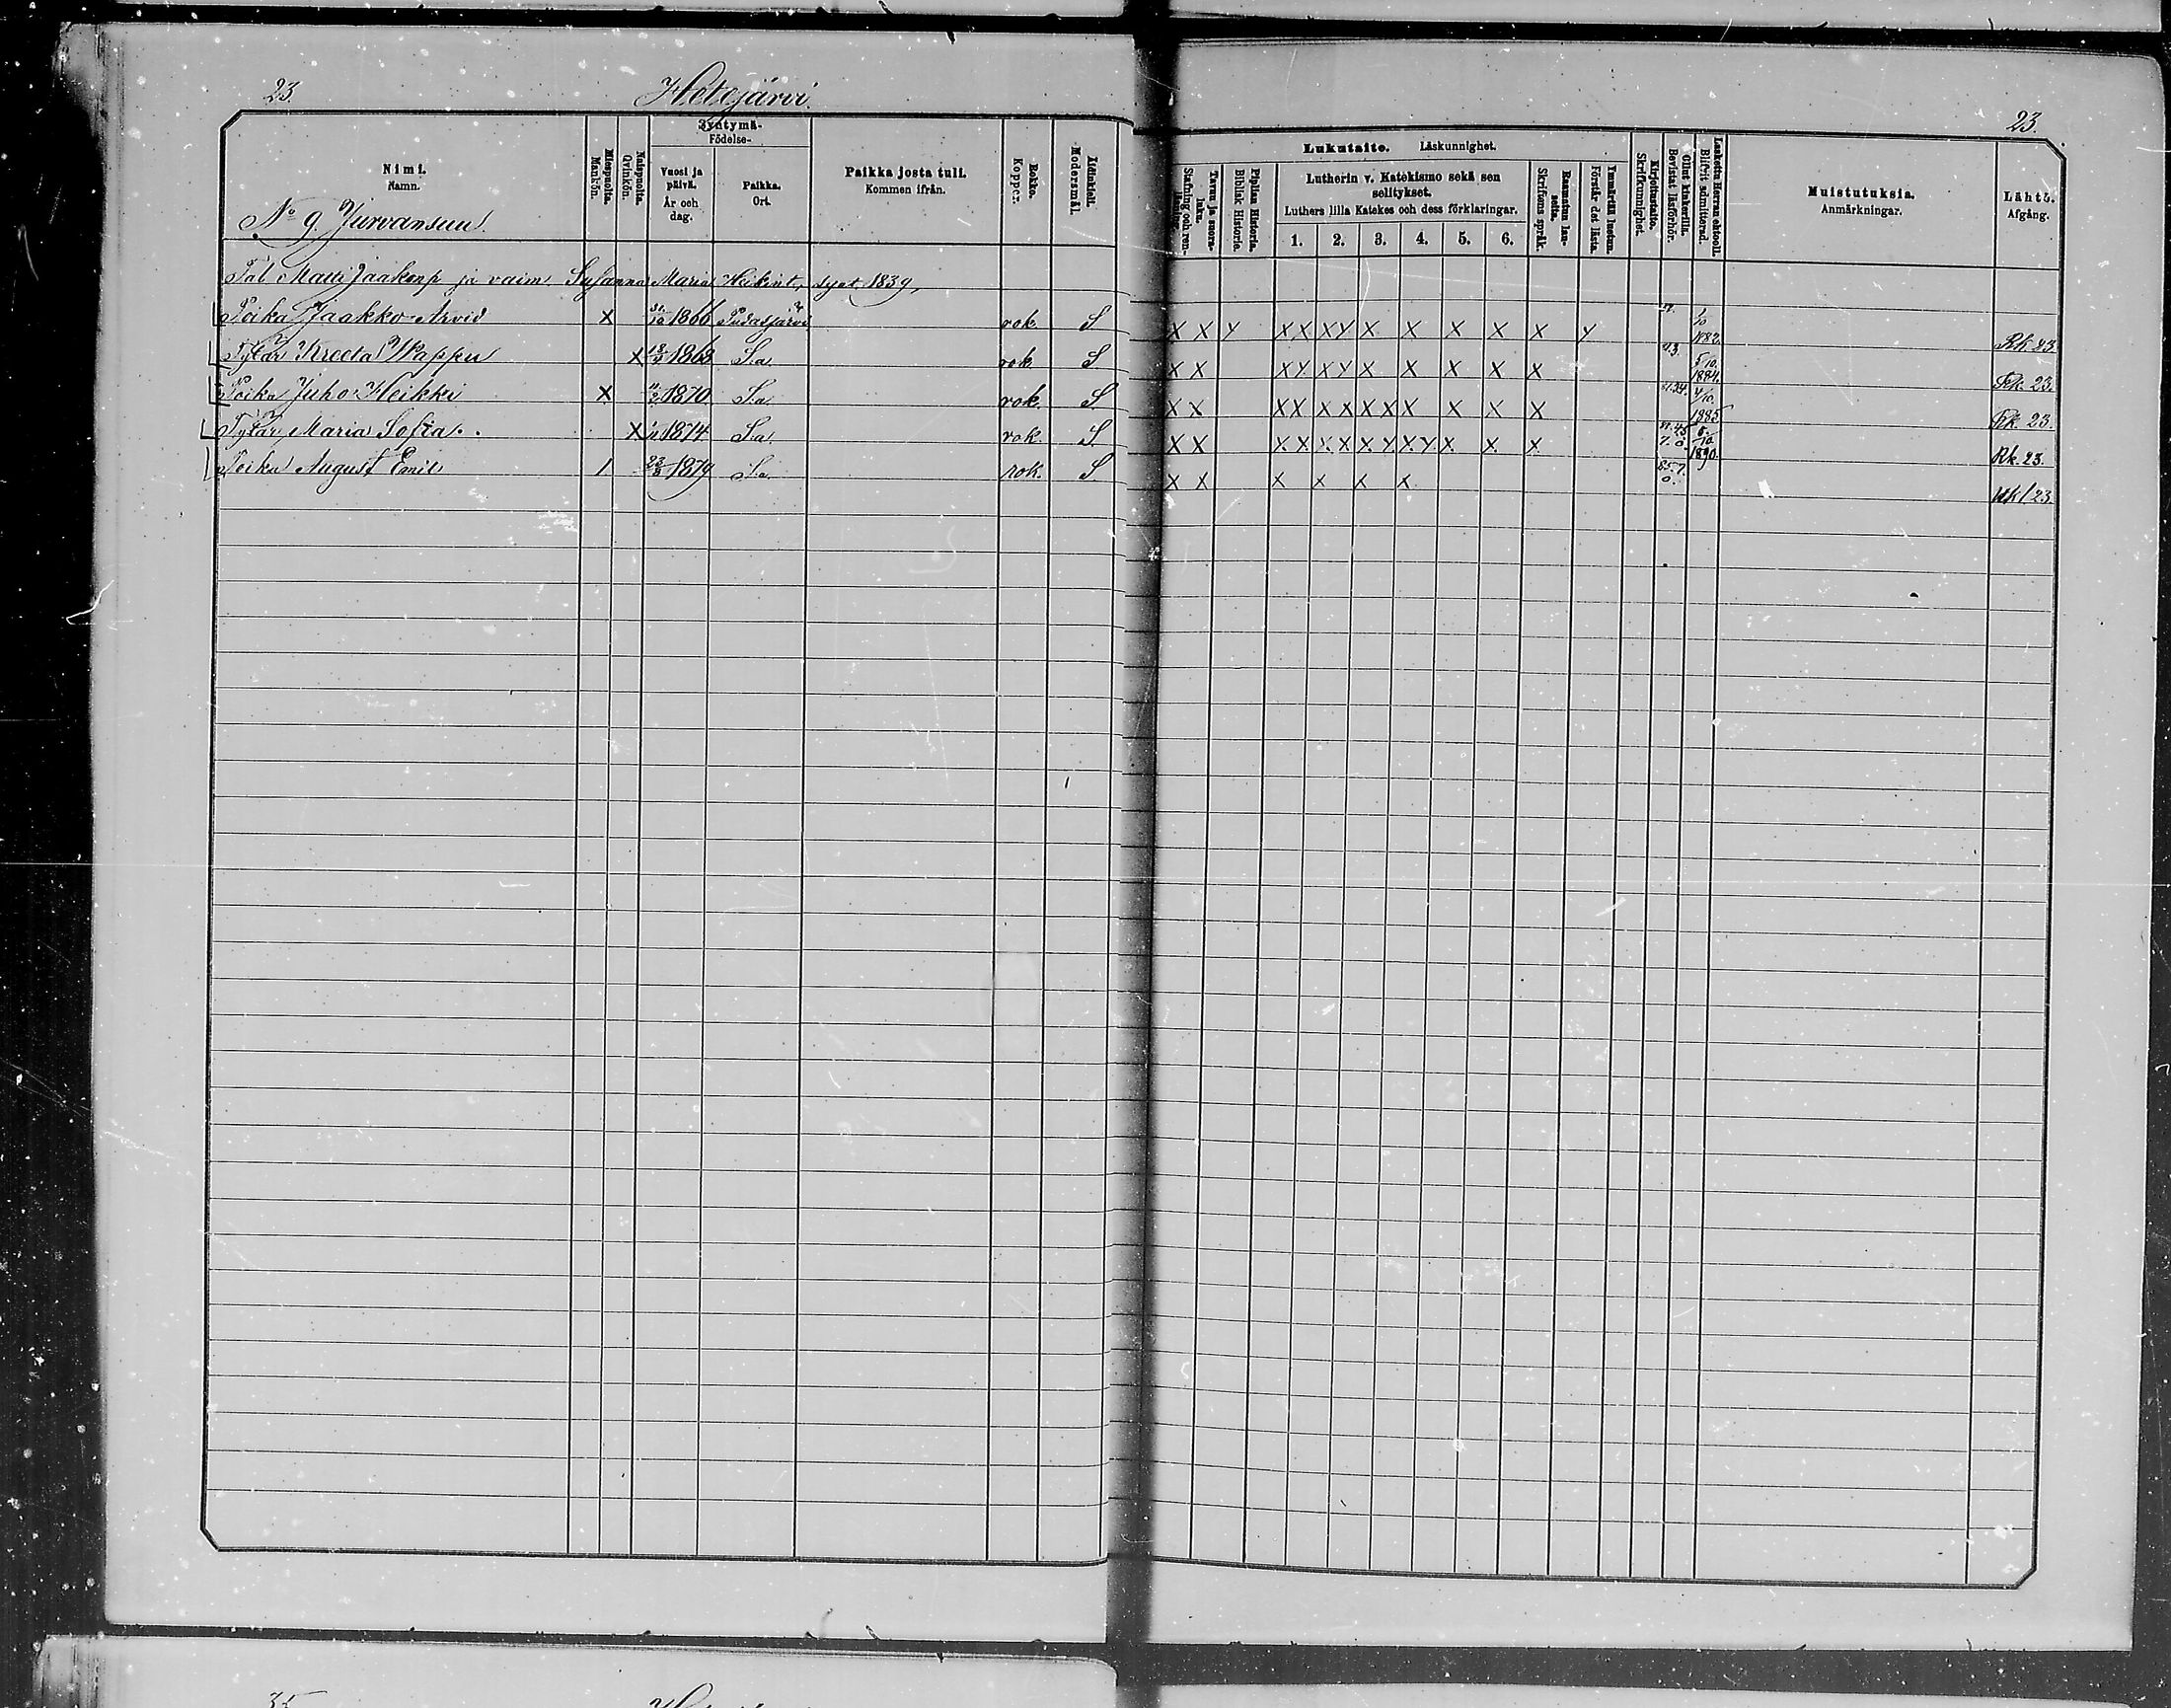 23. Hetejärvi. 23.
Nimi. Namn.
Miespuolta. Mankön.
Naispuolta. Qvinkön.
Syntymä- Födelse-
Vuosi ja päivä. År och dag.
Paikka. Ort.
Paikka josta tuli. Kommen ifrån.
Rokko. Koppor.
Äidinkieli. Modersmål.
Lukutaito. Läskunnighet.
Piplian Historia. Biblisk Historie.
Lutherin v. Katekismo sekä sen selitykset.
Luthers lilla Katekes och dess förklaringar.
1. 2. 3. 4. 5. 6.
Skriftens språk.
Förstår det lästa.
Kirjoitustaito. Skrifkunnighet.
Ollut kinkerillä. Bevistat läsförhör.
Laskettu Herran ehtoolle. Blifvit admitterad.
Muistutuksia. Anmärkningar.
Lähtö. Afgång.
No 9. Jurvansuu
Tal Matti Jaakonp ja vaim. Susanna Maria Heikint, synt 1839,
Poika Jaakko Arvid X 1866 Pudasjärvi rok. S X X Y X X X Y X X X X X Y 1882. Rk 23
Tytär Kreeta Wappu X 1868 S.a. rok S X X X Y X Y X X X X X 5/10. 1884. Rk. 23.
Poika Juho Heikki X 1870 S.a. rok. S. X X X X X X X X X X X X 1885 Rk. 23.
Tytär Maria Sofia. X 1874 S.a. rok. S. X X X X X X X Y X Y X X X 1890. Rk. 23.
Poika August Emil 1 23/8 1879 S.a. rok. S. X X X X X X 23
35